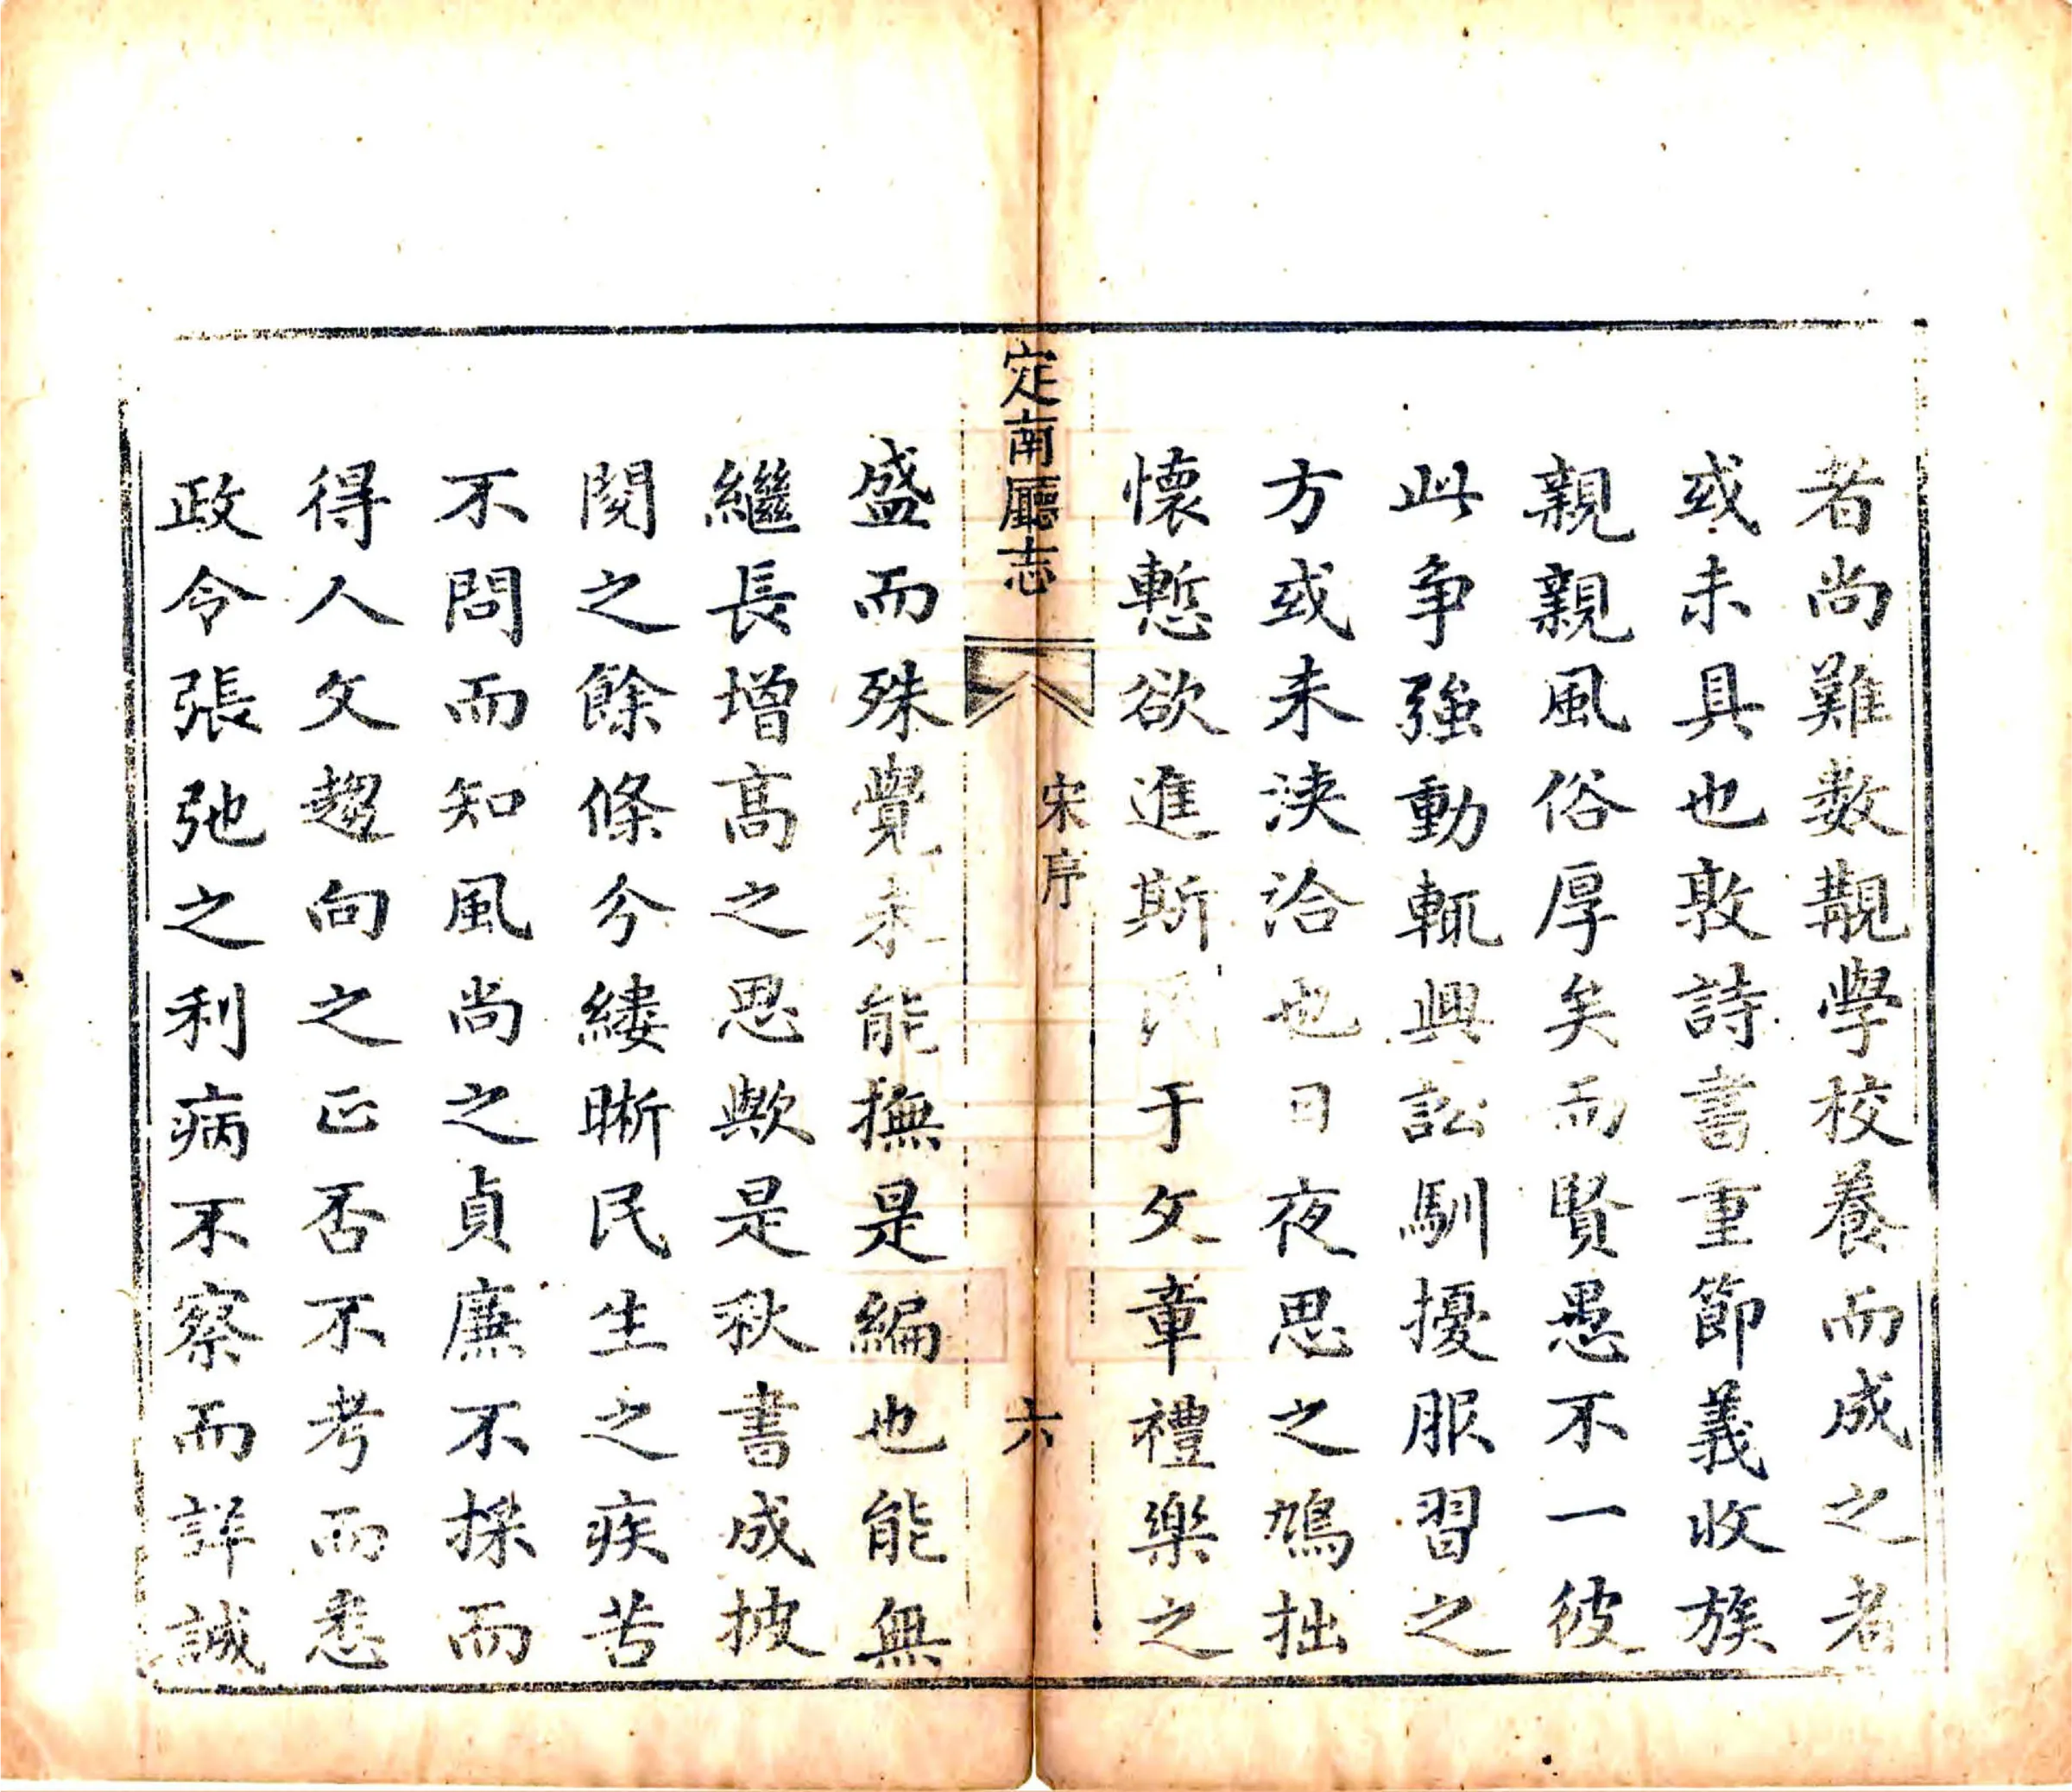 者尚難數覯學校養而成之者
或未具也敦詩書重節義收族
親親風俗厚矣而賢愚不一彼
此争強動輒興訟馴擾服習之
方或未浹洽也日夜思之鳩拙
懷慙欲進斯民于文章禮樂之
定南廳志
宋序
六
盛而殊覺未能撫是編也能無
繼長增高之思歟是秋書成披
閱之餘條分縷晰民生之疾苦
不問而知風尚之貞廉不採而
得人文趨向之正否不考而悉
政令張弛之利病不察而詳誠